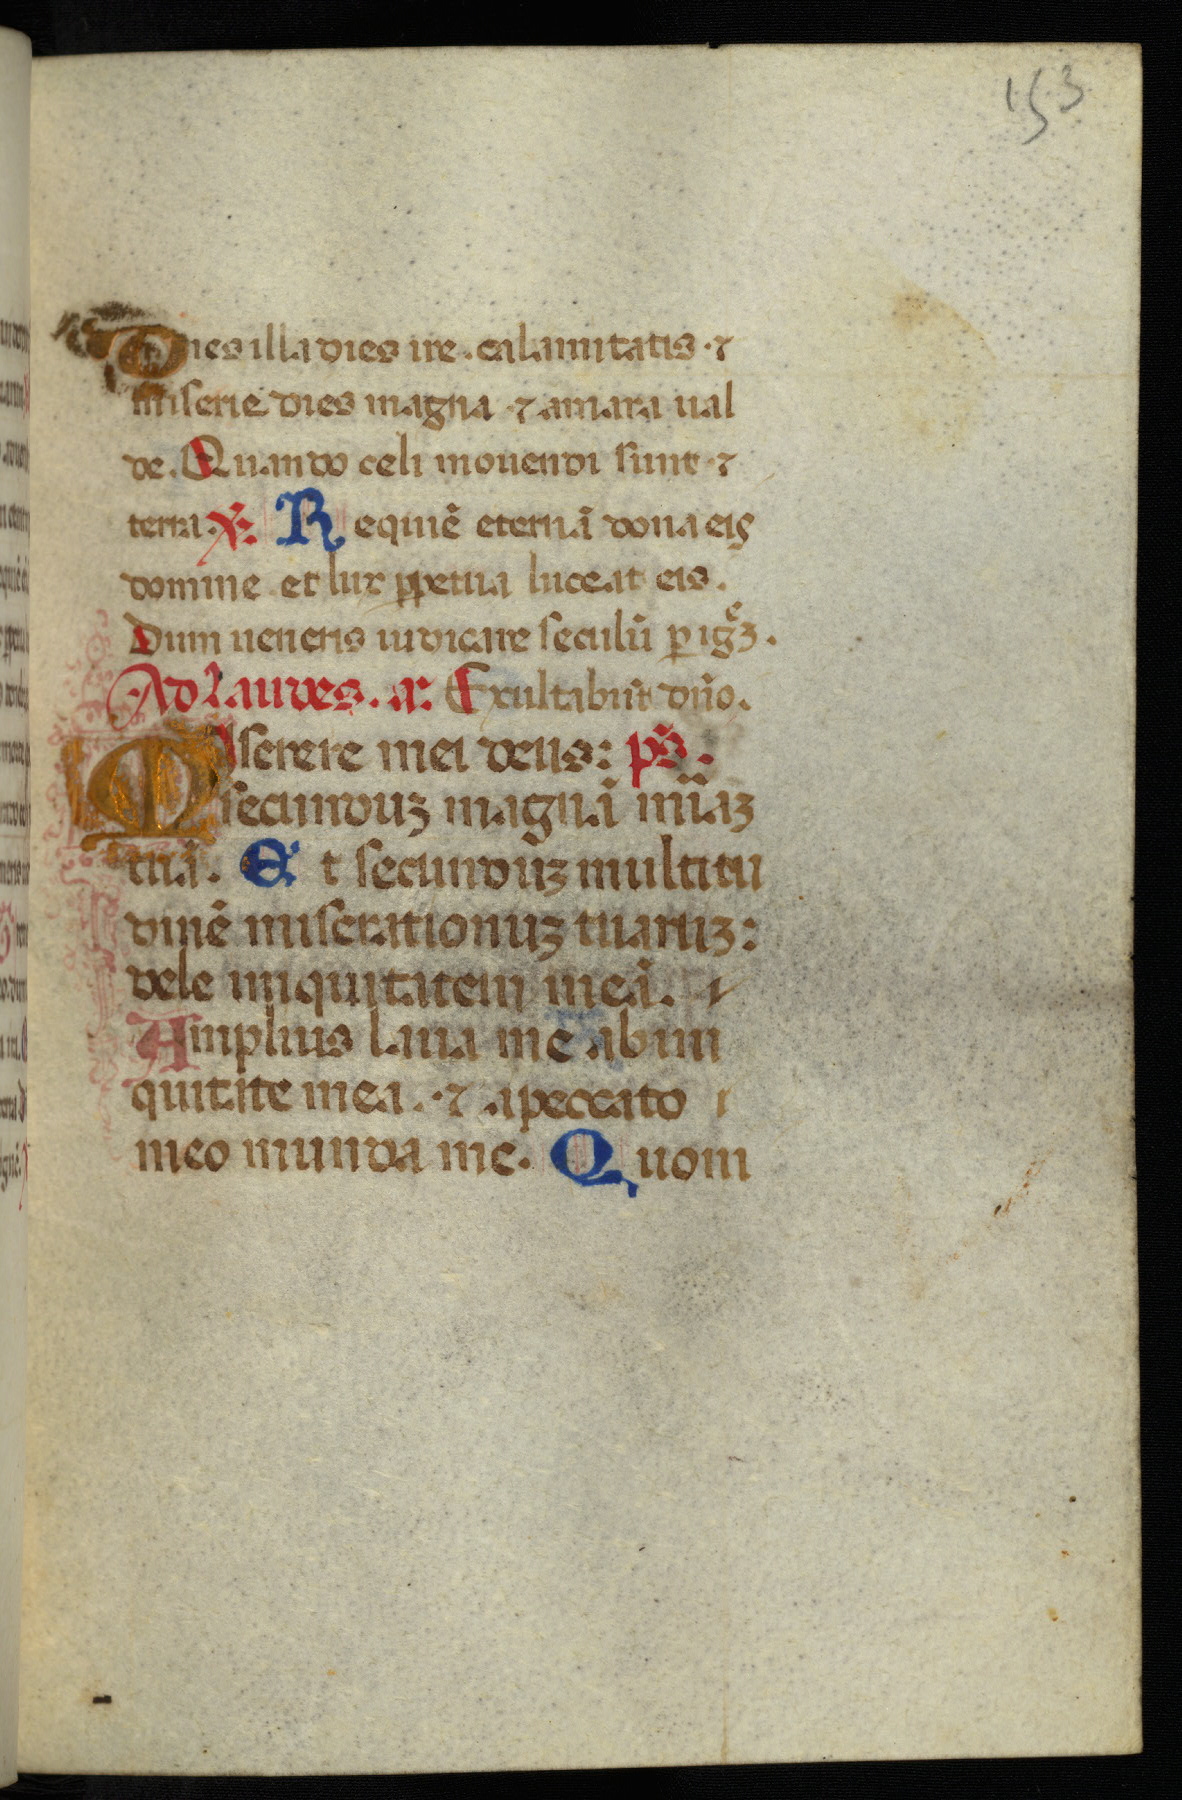 153
Dies illa dies ire. calamitatis. ⁊
miserie dies magna ⁊ amara ual
de. Quando celi mouendi sunt ⁊
terra. ℣. Requiē eternā dona eis
domine et lux ꝑpetua luceat eis.
Dum ueneris iudicare seculū ꝑ igē̄ꝫ.
Ad laudes. añ. Exultabūt dño.
Miserere mei deus: pš.
secunduꝫ magnā miīaꝫ
tuā. Et secundūꝫ multitu
dinē miserationuꝫ tuaruꝫ:
dele iniquitatem meā.
Amplius laua me ab ini
quitate mea. ⁊ a peccato
meo munda me. Quoni